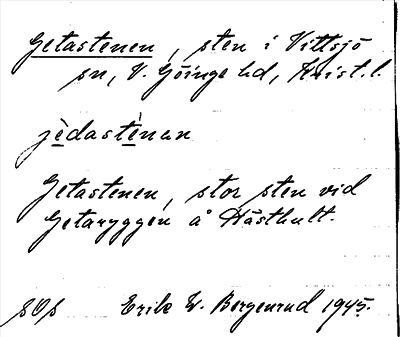 Getastenen, sten i Vittsjö
sn, V. Göinge hd, Krist. l.
jèdasténan
Getastenen, stor sten vid
Getaryggen å Hästhult.
SOS Erik W. Bergenrud 1945.